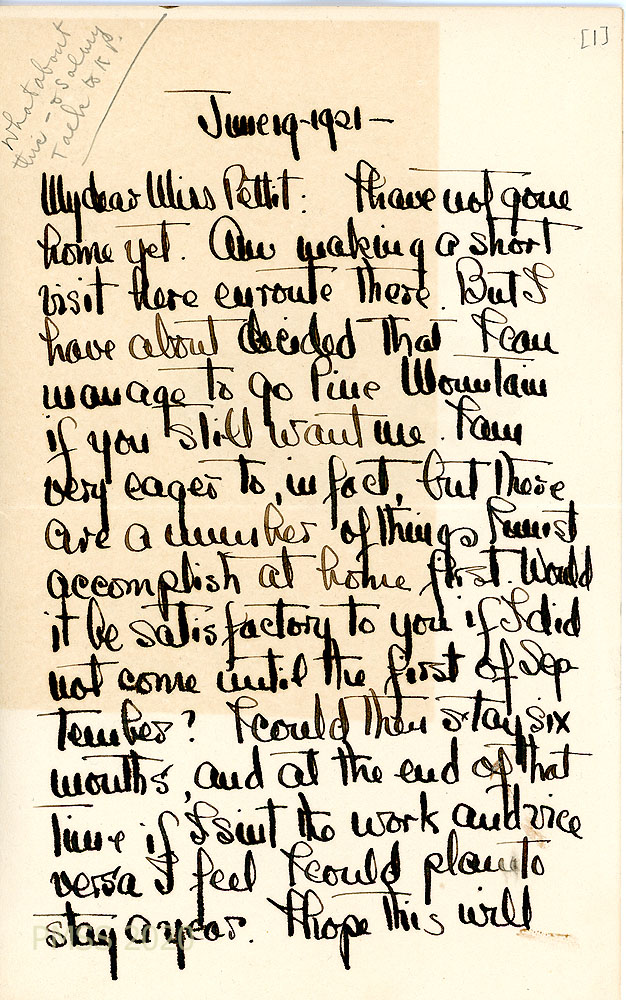 What about
this - & salary
Talk to K P.
[1]
June 19-1921-
My dear Miss Pettit: I have not gone
home yet. Am making a short
visit here enroute there. But I
have about decided that I can
manage to go Pine Mountain
if you still want me. I am
very eager to, in fact, but there
are a number of things I must
accomplish at home first. Would
it be satisfactory to you if I did
not come until the first of Sep-
tember? I could then stay six
months, and at the end of that
time if I suit the work and vice
versa I feel I could plan to
stay a year. I hope this will
PMSS 2020